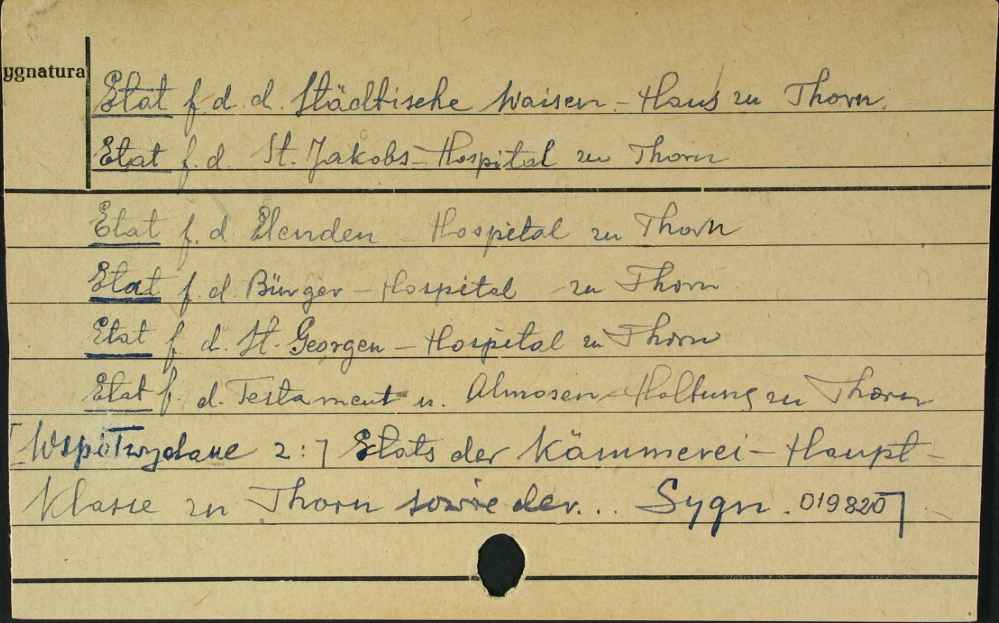 ygnatura
Etat f. d. d. Städtische Waisen-Haus zu Thorn.
Etat f. d. St. Jakobs-Hospital zu Thorn
Etat f. d Elenden-Hospital zu Thorn
Etat f. d. Bürger-Hospital zu Thorn
Etat f. d. St. Georgen-Hospital zu Thorn
Etat f. d. Testament u. Almosen-Haltung zu Thorn
[Współwydane z: 7 Etats der Kämmerei-Haupt-
Klasse zu Thorn sowie der... Sygn. 019820]